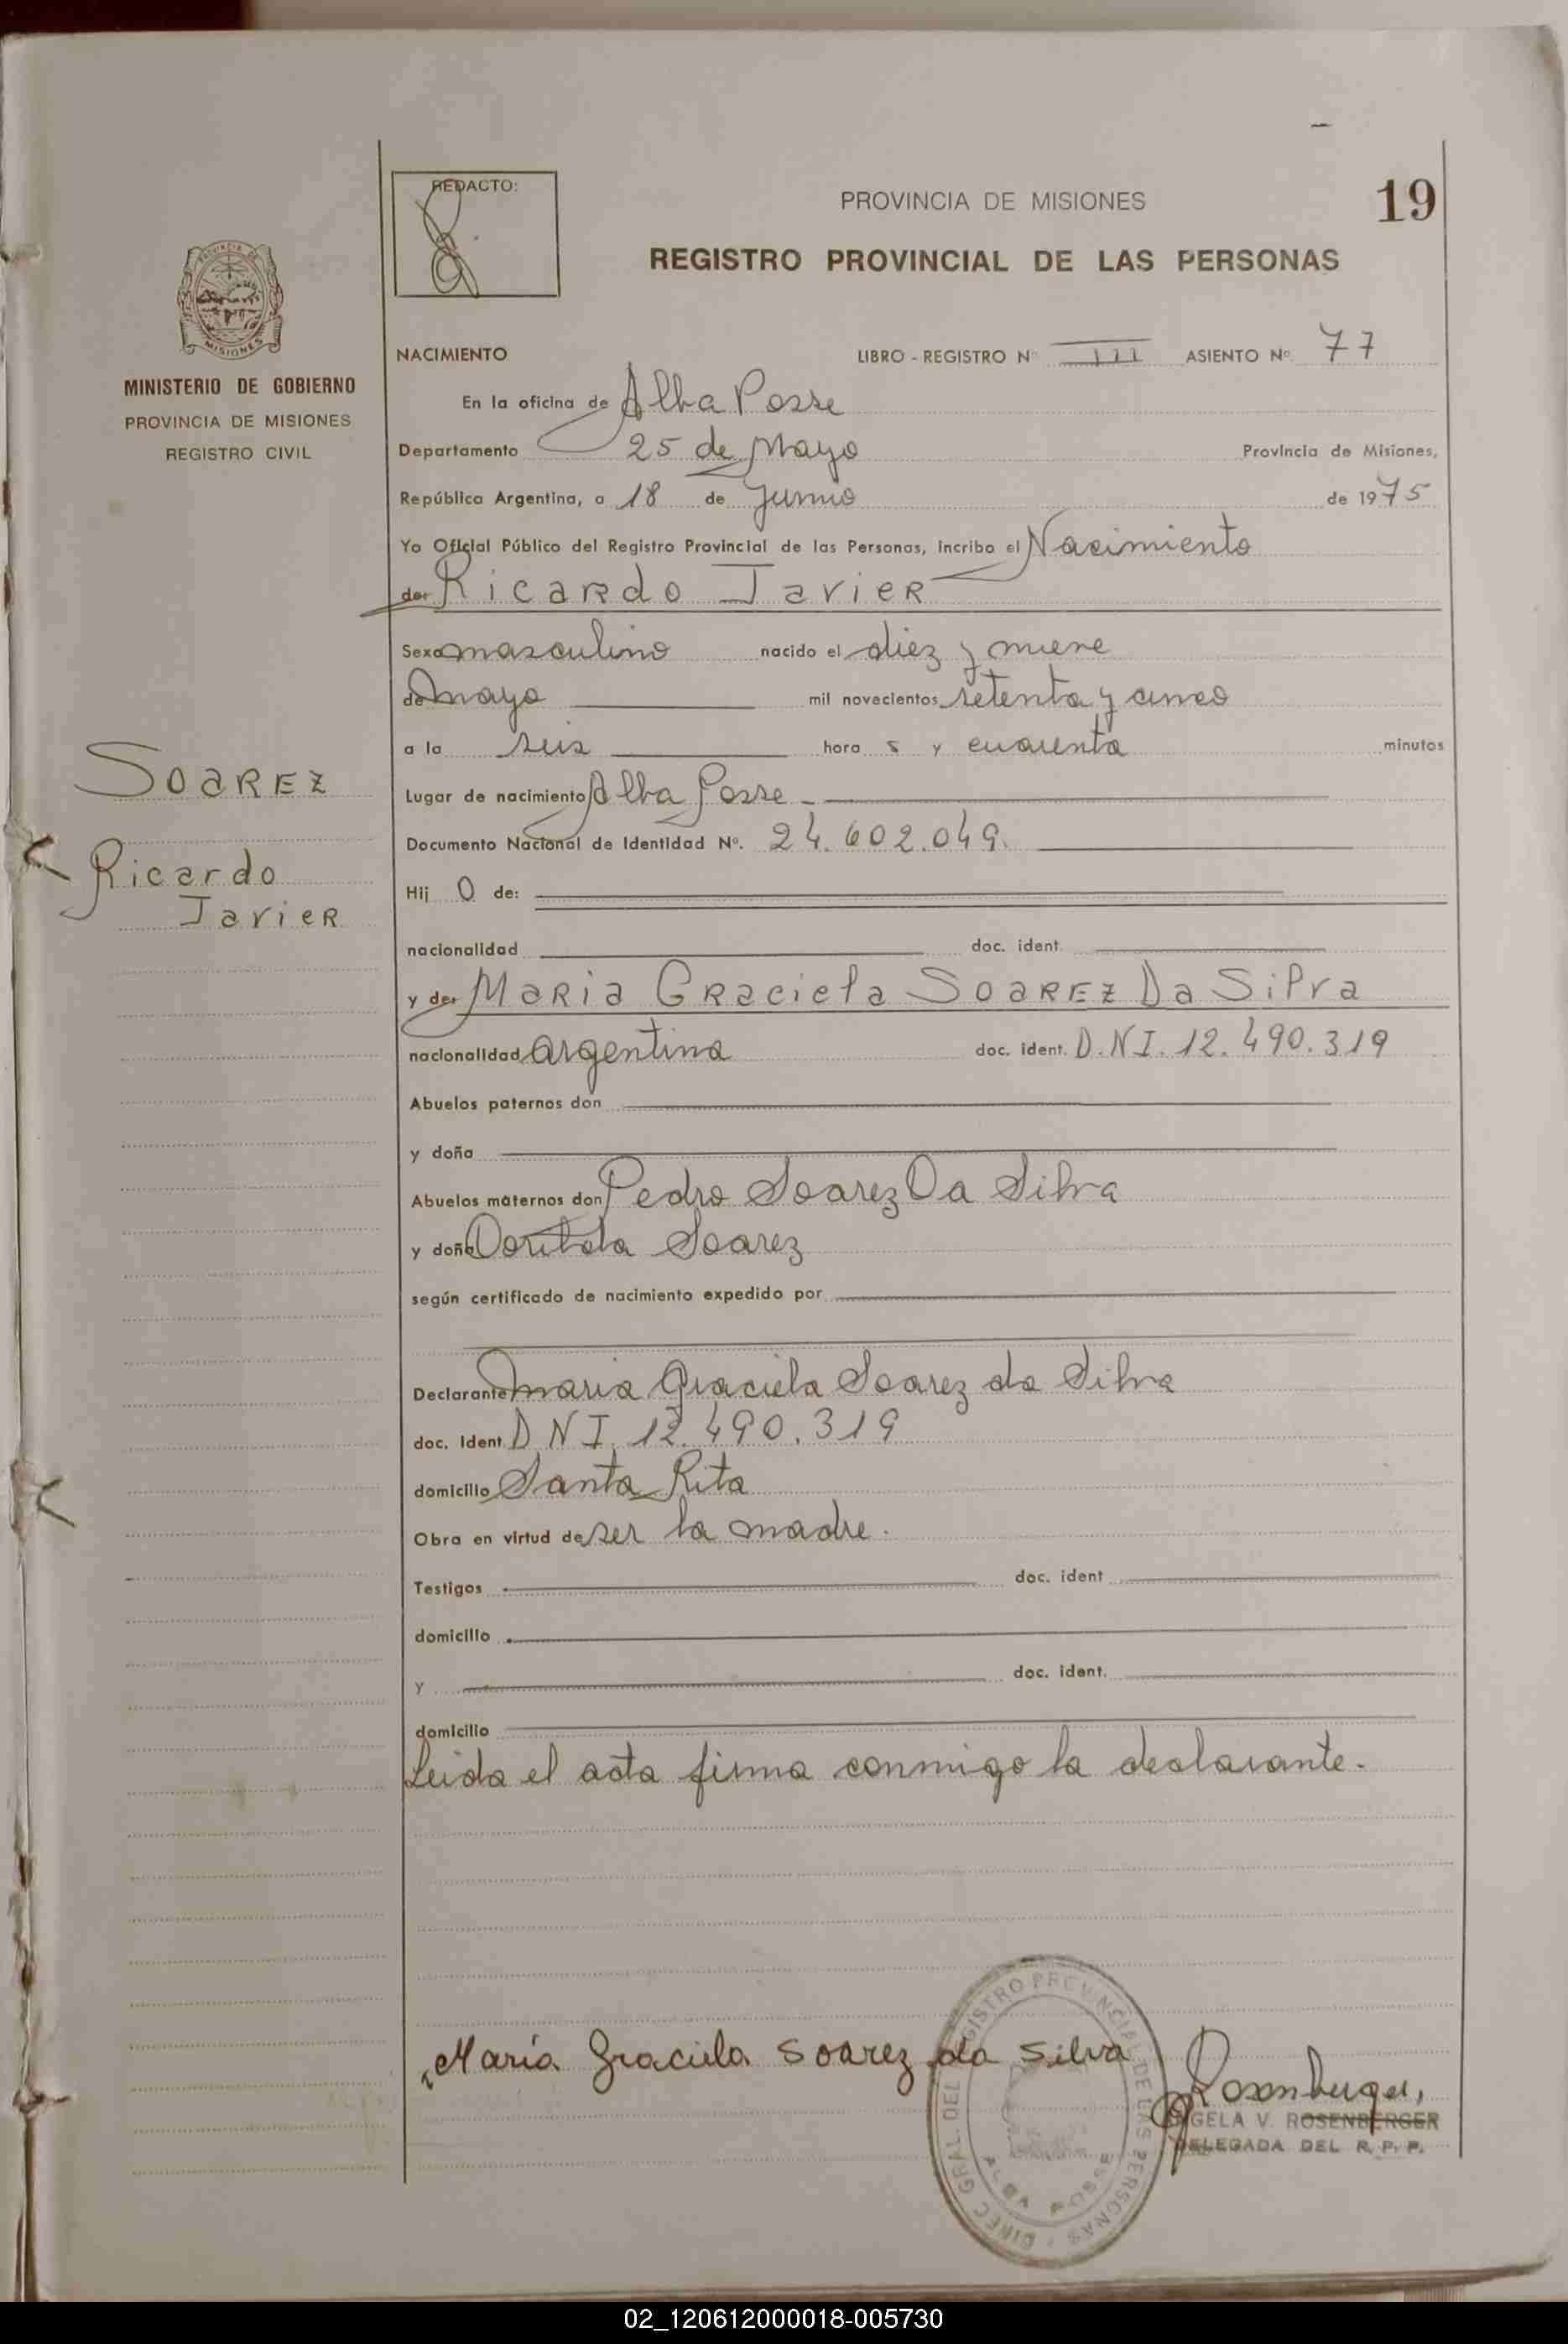 REDACTO:
PROVINCIA DE MISIONES
19
REGISTRO PROVINCIAL DE LAS PERSONAS
PROVINCIA DE
MISIONES
MINISTERIO DE GOBIERNO
PROVINCIA DE MISIONES
REGISTRO CIVIL
NACIMIENTO LIBRO - REGISTRO Nº III ASIENTO Nº 77
En la oficina de Alba Posse
Departamento 25 de Mayo Provincia de Misiones,
República Argentina, a 18 de Junio de 1975
Yo Oficial Público del Registro Provincial de las Personas, incribo el Nacimiento
de: Ricardo Javier
Sexo masculino nacido el diez y nueve
de mayo mil novecientos setenta y cinco
a la seis hora s y cuarenta minutos
Lugar de nacimiento Alba Posse
Documento Nacional de Identidad Nº. 24.602.049.
Hij o de:
nacionalidad doc. ident.
y de: Maria Graciela Soarez Da Silva
nacionalidad argentina doc. ident. D.N.I. 12.490.319
Abuelos paternos don
y doña
Abuelos maternos don Pedro Soarez Da Silva
y doña Soarez
según certificado de nacimiento expedido por
Declarante Maria Graciela Soarez da Silva
doc. ident. D N I 12.490.319
domicilio Santa Rita
Obra en virtud de ser la madre.
Testigos doc. ident
domicilio
y doc. ident.
domicilio
Leida el acta firma conmigo la declarante.
Soarez
Ricardo
Javier
María Graciela Soarez da Silva
Rosenberger
GELA V. ROSENBERGER
DELEGADA DEL R. P. P.
DIREC GRAL. DEL REGISTRO PROVINCIAL DE LAS PERSONAS
ALBA POSSE
02_120612000018-005730